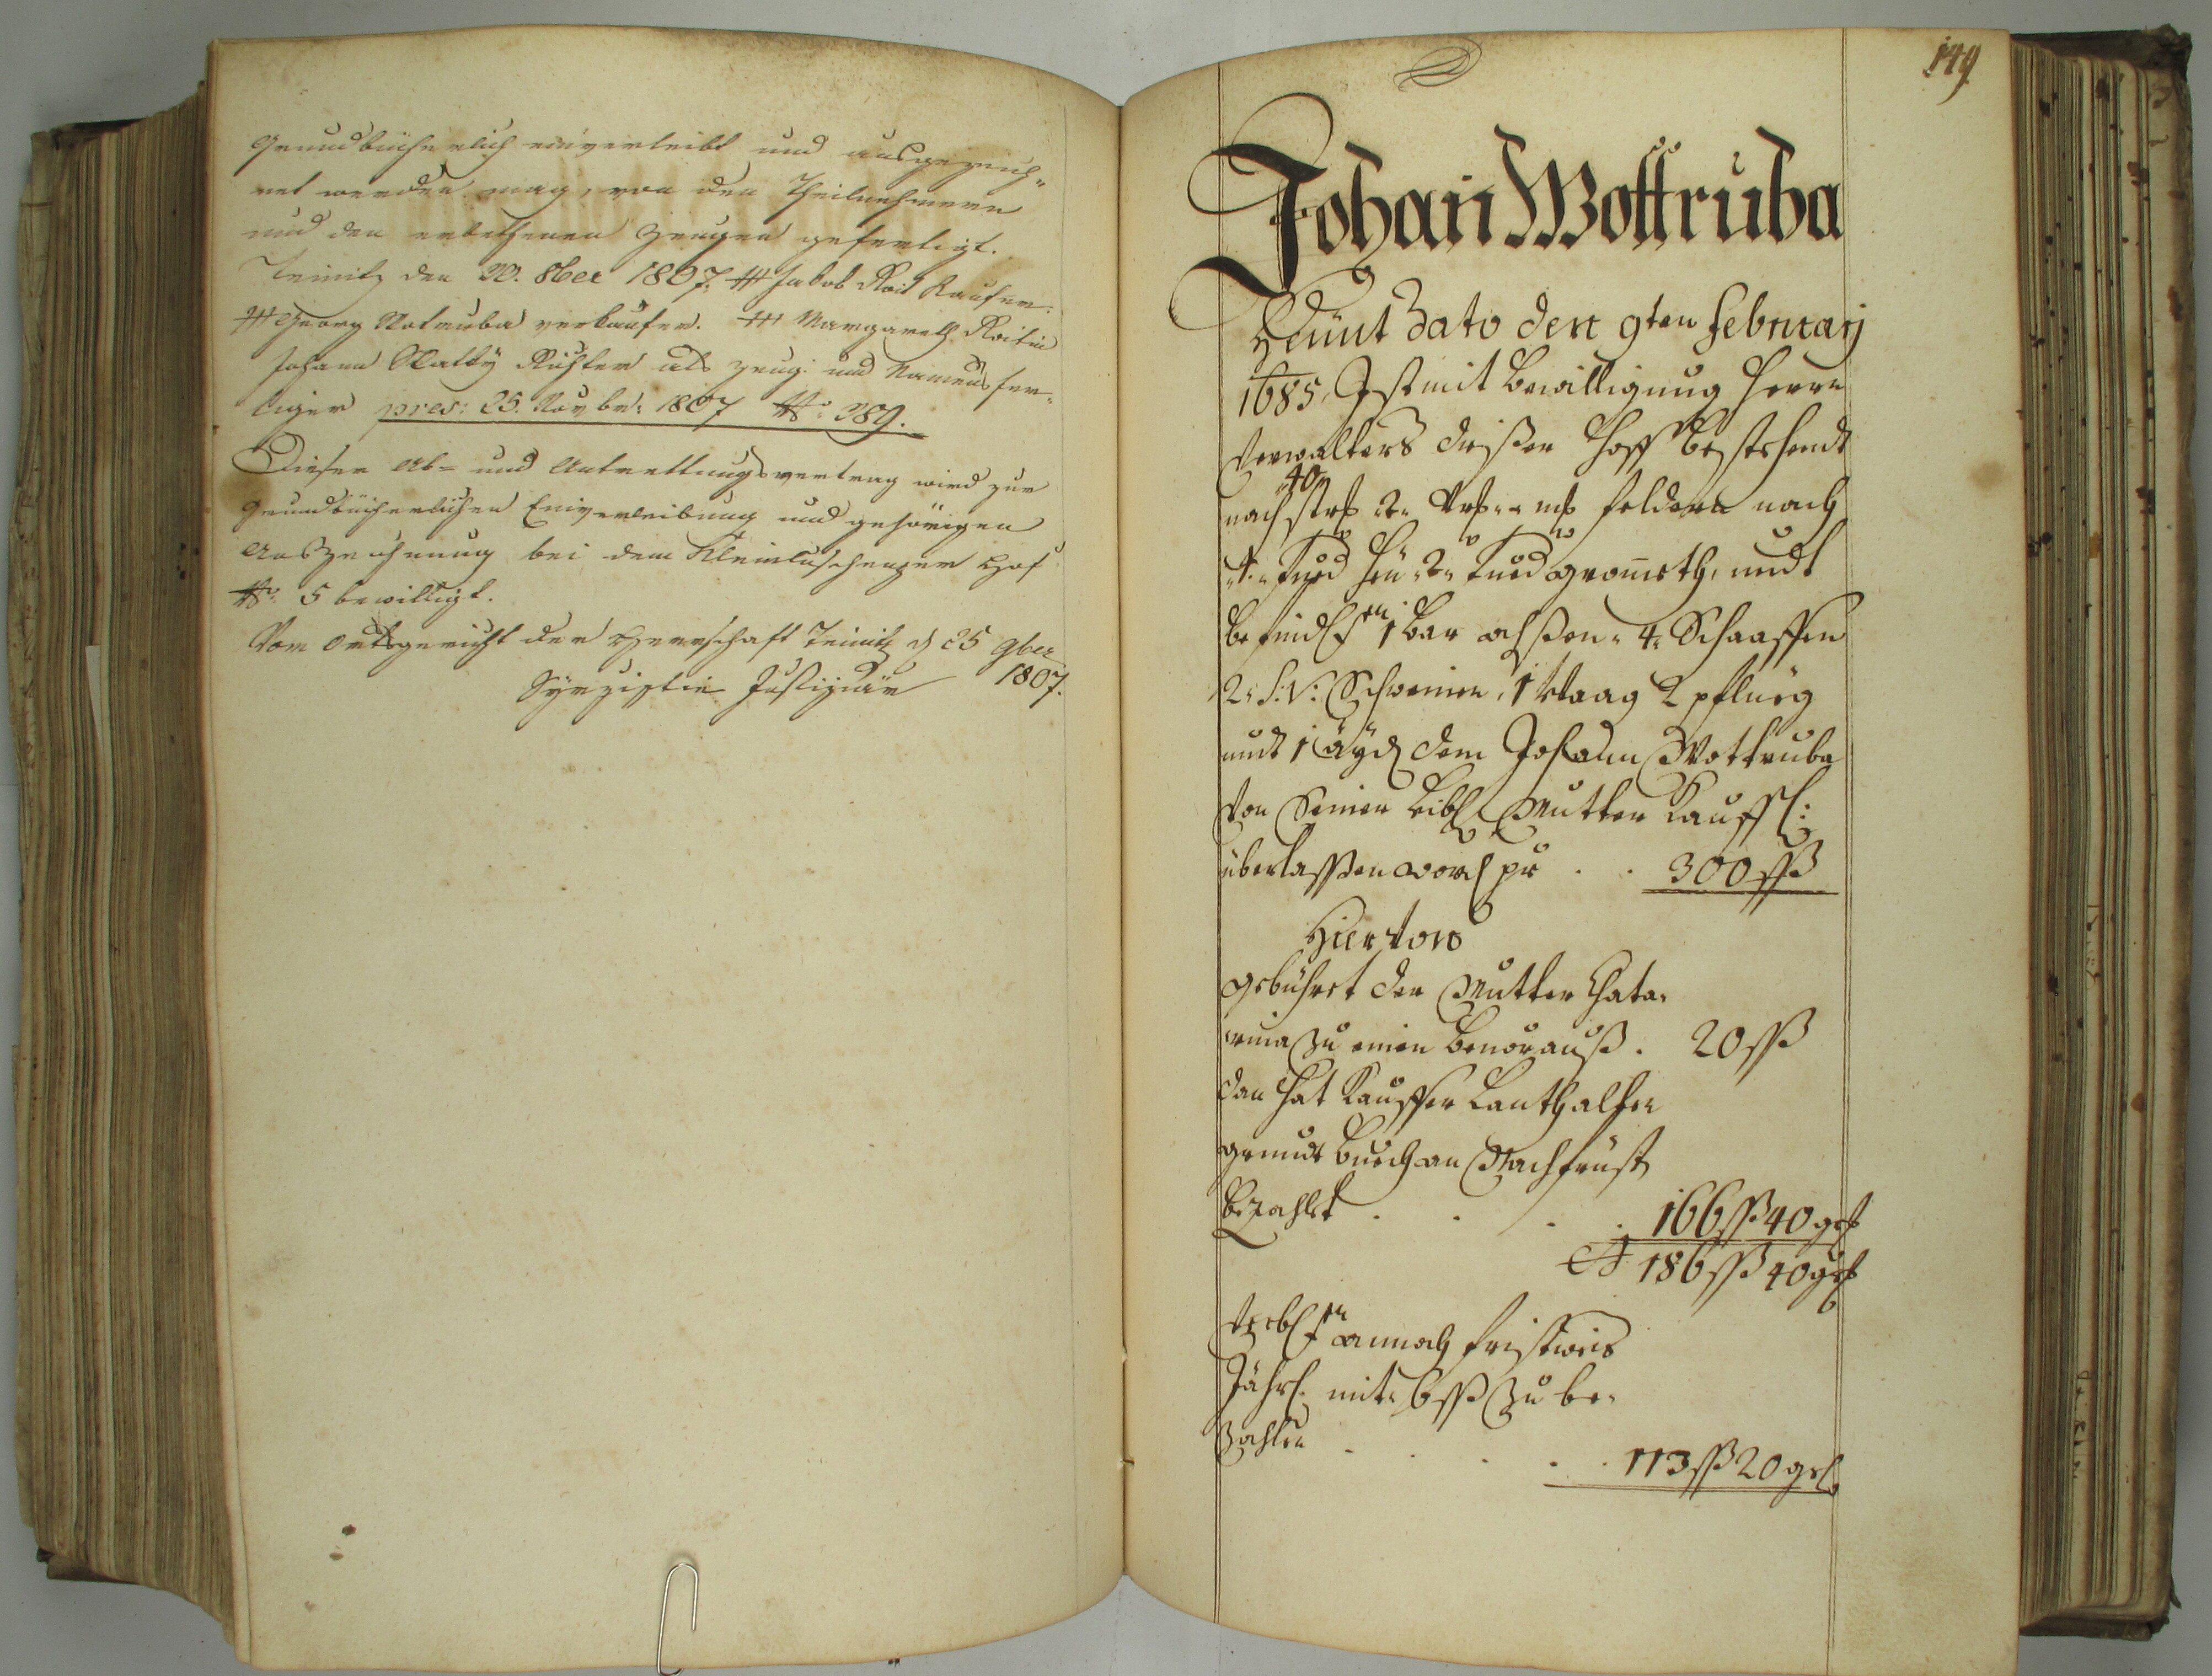 grundbücherlich einverleibt und ausgezeich„
net werden mag, von den Theilnehmern
und den erbethenen Zeugen gefertigt.
Teinitz den 20. 8ber 1807. +++ Jakob Roit Kaufer.
+++ Georg Wotruba verkäufer. +++ Margareth Roitin
Johann Skalky Richter als zeug: und Namensfer„
tiger pres: 25. Novbr: 1807 No: 389.
Dieser Ab= und Antrettungsvertrag wird zur
Grundbücherlichen Einverleibung und gehörigen
Auszeichnung bei dem Kleinluschenzer Hof
No: 5 bewilligt.
Vom Ortsgericht der Herrschaft Teinitz d 25 9ber
Justiziär 1807.
149
Johan Wottruba
Heünt Dato den 9ten Februarij
1685. Ist mit bewilligung Herrn
Verwalters dißer Hoff bestehendt
40
nach felders nach
4. Fued heü. 2. Fued grometh, undt
befindl 1 bar ochßen. 4. Schaaffen
2. S: V: Schweinen, 1 Waag 2 pflueg
undt 1 äyd dem Johann Wottruba
Von Seiner leibl Mutter Kauffl:
überlassen word pr . . 300 ßß
Hiervon
gebühret der Mutter Chata„
rina zu einen bevorauß . 20 ßß
dan hat Kauffer lauth alten
grundt buech an Nachfrüst
bezahlt . . . . 166 ßß 40 gr
186 ßß 40 gr
annoch fristweis
Jährl. mit 6 ßß zu be„
zahlen . . . . . 113 ßß 20 gr